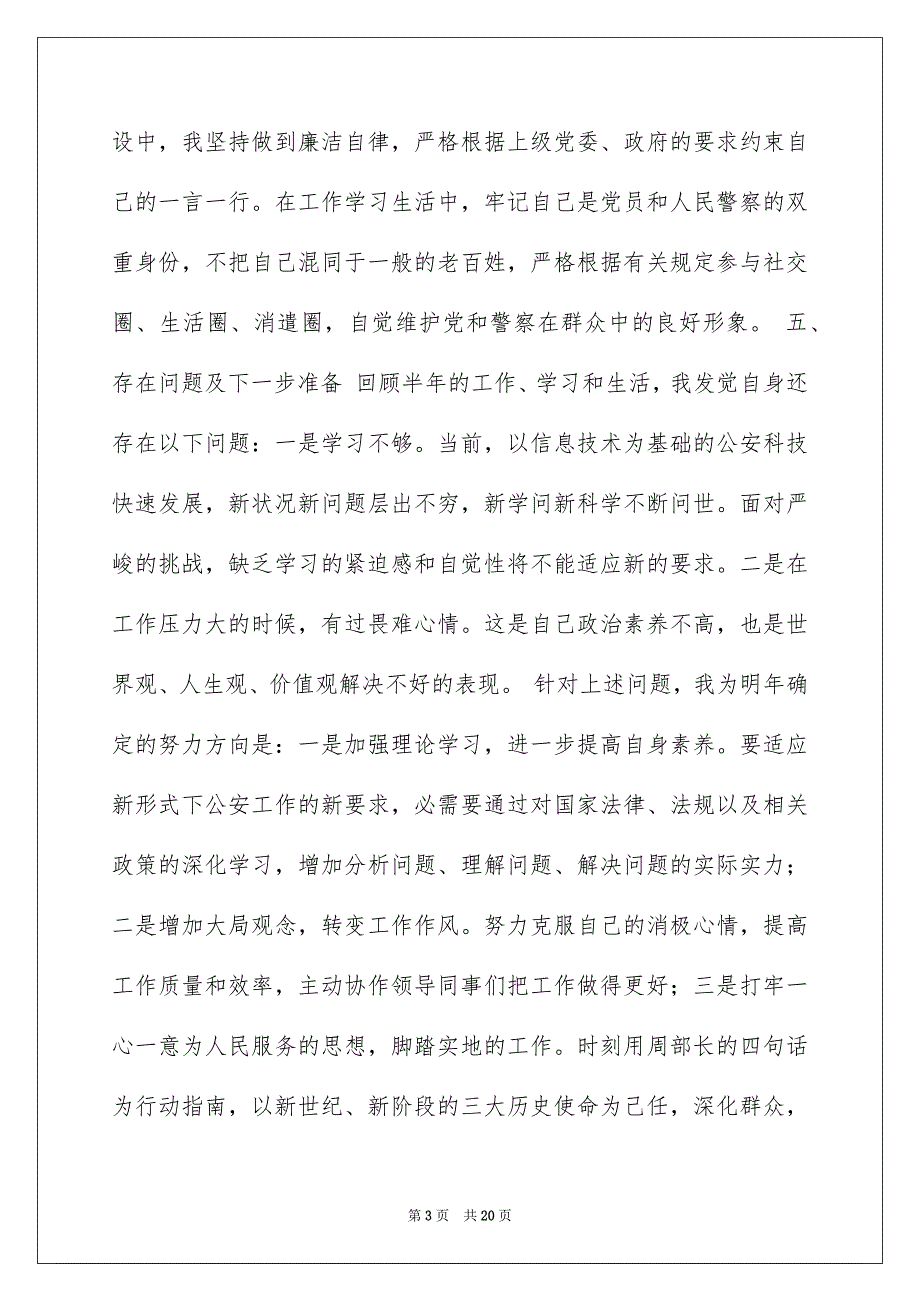 设中，我坚持做到廉洁自律，严格根据上级党委、政府的要求约束自
己的一言一行。在工作学习生活中，牢记自己是党员和人民警察的双
重身份，不把自己混同于一般的老百姓，严格根据有关规定参与社交
圈、生活圈、消遣圈，自觉维护党和警察在群众中的良好形象。 五、
存在问题及下一步准备 回顾半年的工作、学习和生活，我发觉自身还
存在以下问题：一是学习不够。当前，以信息技术为基础的公安科技
快速发展，新状况新问题层出不穷，新学问新科学不断问世。面对严
峻的挑战，缺乏学习的紧迫感和自觉性将不能适应新的要求。二是在
工作压力大的时候，有过畏难心情。这是自己政治素养不高，也是世
界观、人生观、价值观解决不好的表现。 针对上述问题，我为明年确
定的努力方向是：一是加强理论学习，进一步提高自身素养。要适应
新形式下公安工作的新要求，必需要通过对国家法律、法规以及相关
政策的深化学习，增加分析问题、理解问题、解决问题的实际实力；
二是增加大局观念，转变工作作风。努力克服自己的消极心情，提高
工作质量和效率，主动协作领导同事们把工作做得更好；三是打牢一
心一意为人民服务的思想，脚踏实地的工作。时刻用周部长的四句话
为行动指南，以新世纪、新阶段的三大历史使命为己任，深化群众，
第 3 页 共 20 页